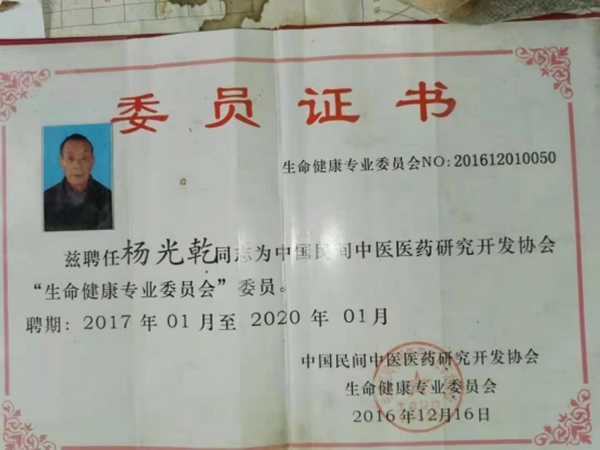 委员证书
生命健康专业委员会NO:201612010050
兹聘任杨光乾同志为中国民间中医医药研究开发协会
“生命健康专业委员会”委员。
聘期：2017 年 01 月至 2020 年 01 月
中国民间中医医药研究开发协会
生命健康专业委员会
2016年12月16日